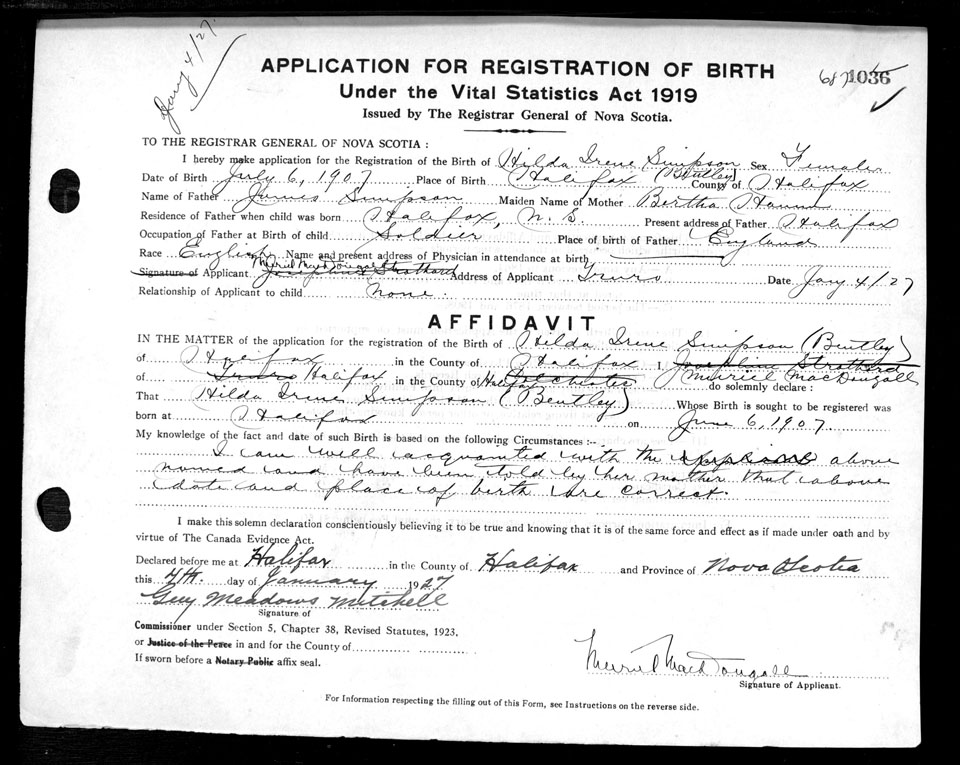 Jany 4/27.
APPLICATION FOR REGISTRATION OF BIRTH
687 1036
Under the Vital Statistics Act 1919
Issued by The Registrar General of Nova Scotia.
TO THE REGISTRAR GENERAL OF NOVA SCOTIA :
I hereby make application for the Registration of the Birth of Hilda Irene Simpson Sex Female
(Bentley)
Date of Birth July 6, 1907 Place of Birth Halifax County of Halifax
Name of Father James Simpson Maiden Name of Mother Bertha
Residence of Father when child was born Halifax, N. S. Present address of Father Halifax
Occupation of Father at Birth of child Soldier Place of birth of Father England
Race English Name and present address of Physician in attendance at birth
Muriel MacDougall
Signature of Applicant Josephine Strathard Address of Applicant Truro Date Jany 4/27
Relationship of Applicant to child None.
AFFIDAVIT
IN THE MATTER of the application for the registration of the Birth of Hilda Irene Simpson (Bentley)
of Halifax in the County of Halifax I, Josephine Strathard
Muriel MacDougall
of Truro Halifax in the County of Halifax Colchester do solemnly declare :
That Hilda Irene Simpson (Bentley) Whose Birth is sought to be registered was
born at Halifax on June 6, 1907.
My knowledge of the fact and date of such Birth is based on the following Circumstances :--
I am well acquainted with the above
named and have been told by her mother that above
date and place of birth are correct.
I make this solemn declaration conscientiously believing it to be true and knowing that it is of the same force and effect as if made under oath and by
virtue of The Canada Evidence Act.
Declared before me at Halifax in the County of Halifax and Province of Nova Scotia
this 4th. day of January 1927
Guy Meadows Mitchell
Signature of
Commissioner under Section 5, Chapter 38, Revised Statutes, 1923,
or Justice of the Peace in and for the County of
If sworn before a Notary Public affix seal.
Muriel MacDougall
Signature of Applicant.
For Information respecting the filling out of this Form, see Instructions on the reverse side.